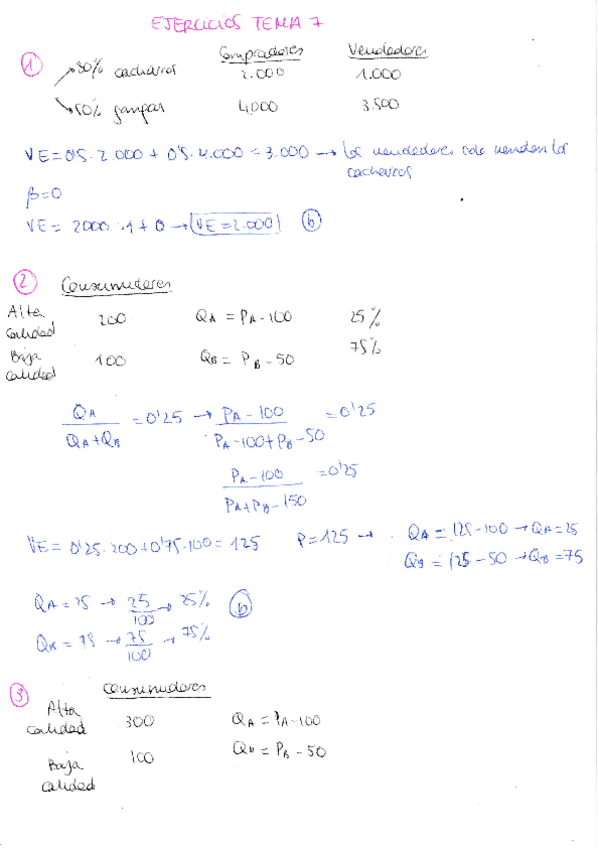 EJERCICIOS TEMA 7
Compradores Vendedores
1 50% cacharros 2.000 1.000
50% gangas 4.000 3.500
VE = 0'5 · 2.000 + 0'5 · 4.000 = 3.000 → los vendedores solo venden los
cacharros
β=0
VE = 2000 · 1 + 0 → VE = 2.000 b
2 Consumidores
Alta calidad 200 QA = PA - 100 25%
Baja calidad 100 QB = PB - 50 75%
QA / QA+QB = 0'25 → PA - 100 / PA - 100 + PB - 50 = 0'25
PA - 100 / PA + PB - 150 = 0'25
VE = 0'25 · 200 + 0'75 · 100 = 125 P = 125 → QA = 125 - 100 → QA = 25
QB = 125 - 50 → QB = 75
QA = 25 → 25/100 → 25% b
QB = 75 → 75/100 → 75%
3 Consumidores
Alta calidad 300 QA = PA - 100
Baja calidad 100 QB = PB - 50